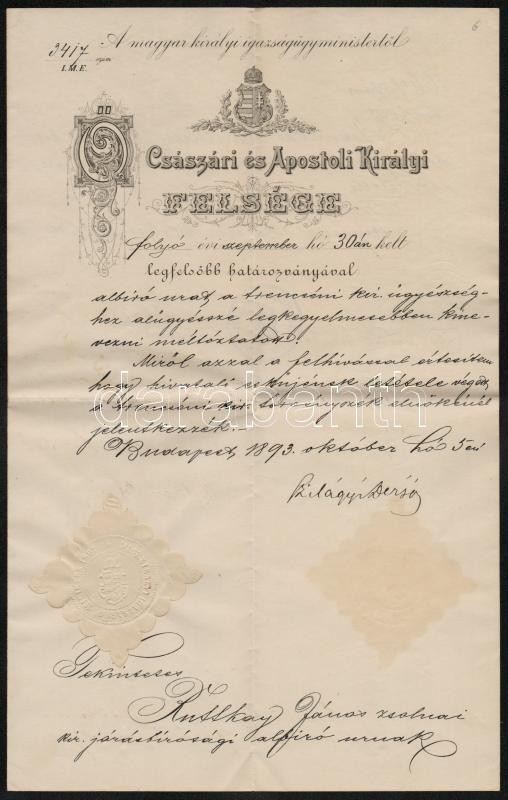 A magyar királyi igazságügyministertől
3417
I. M. E. szám
6
Ő Császári és Apostoli Királyi
FELSÉGE
folyó évi szeptember hó 30án kelt
legfelsőbb határozványával
albiró urat a trencséni kir. ügyészség-
hez alügyészszé legkegyelmesebben kine-
vezni méltóztatott.
Miről azzal a felhívással értesitem
hogy hivatali esküjének letétele végett
a trencséni kir. törvényszék elnökénél
jelentkezzék.-
Budapest, 1893. október hó 5én
Szilágyi Dezső
Tekintetes
Ruttkay János zsolnai
kir. járásbirósági albiró urnak
darabanth